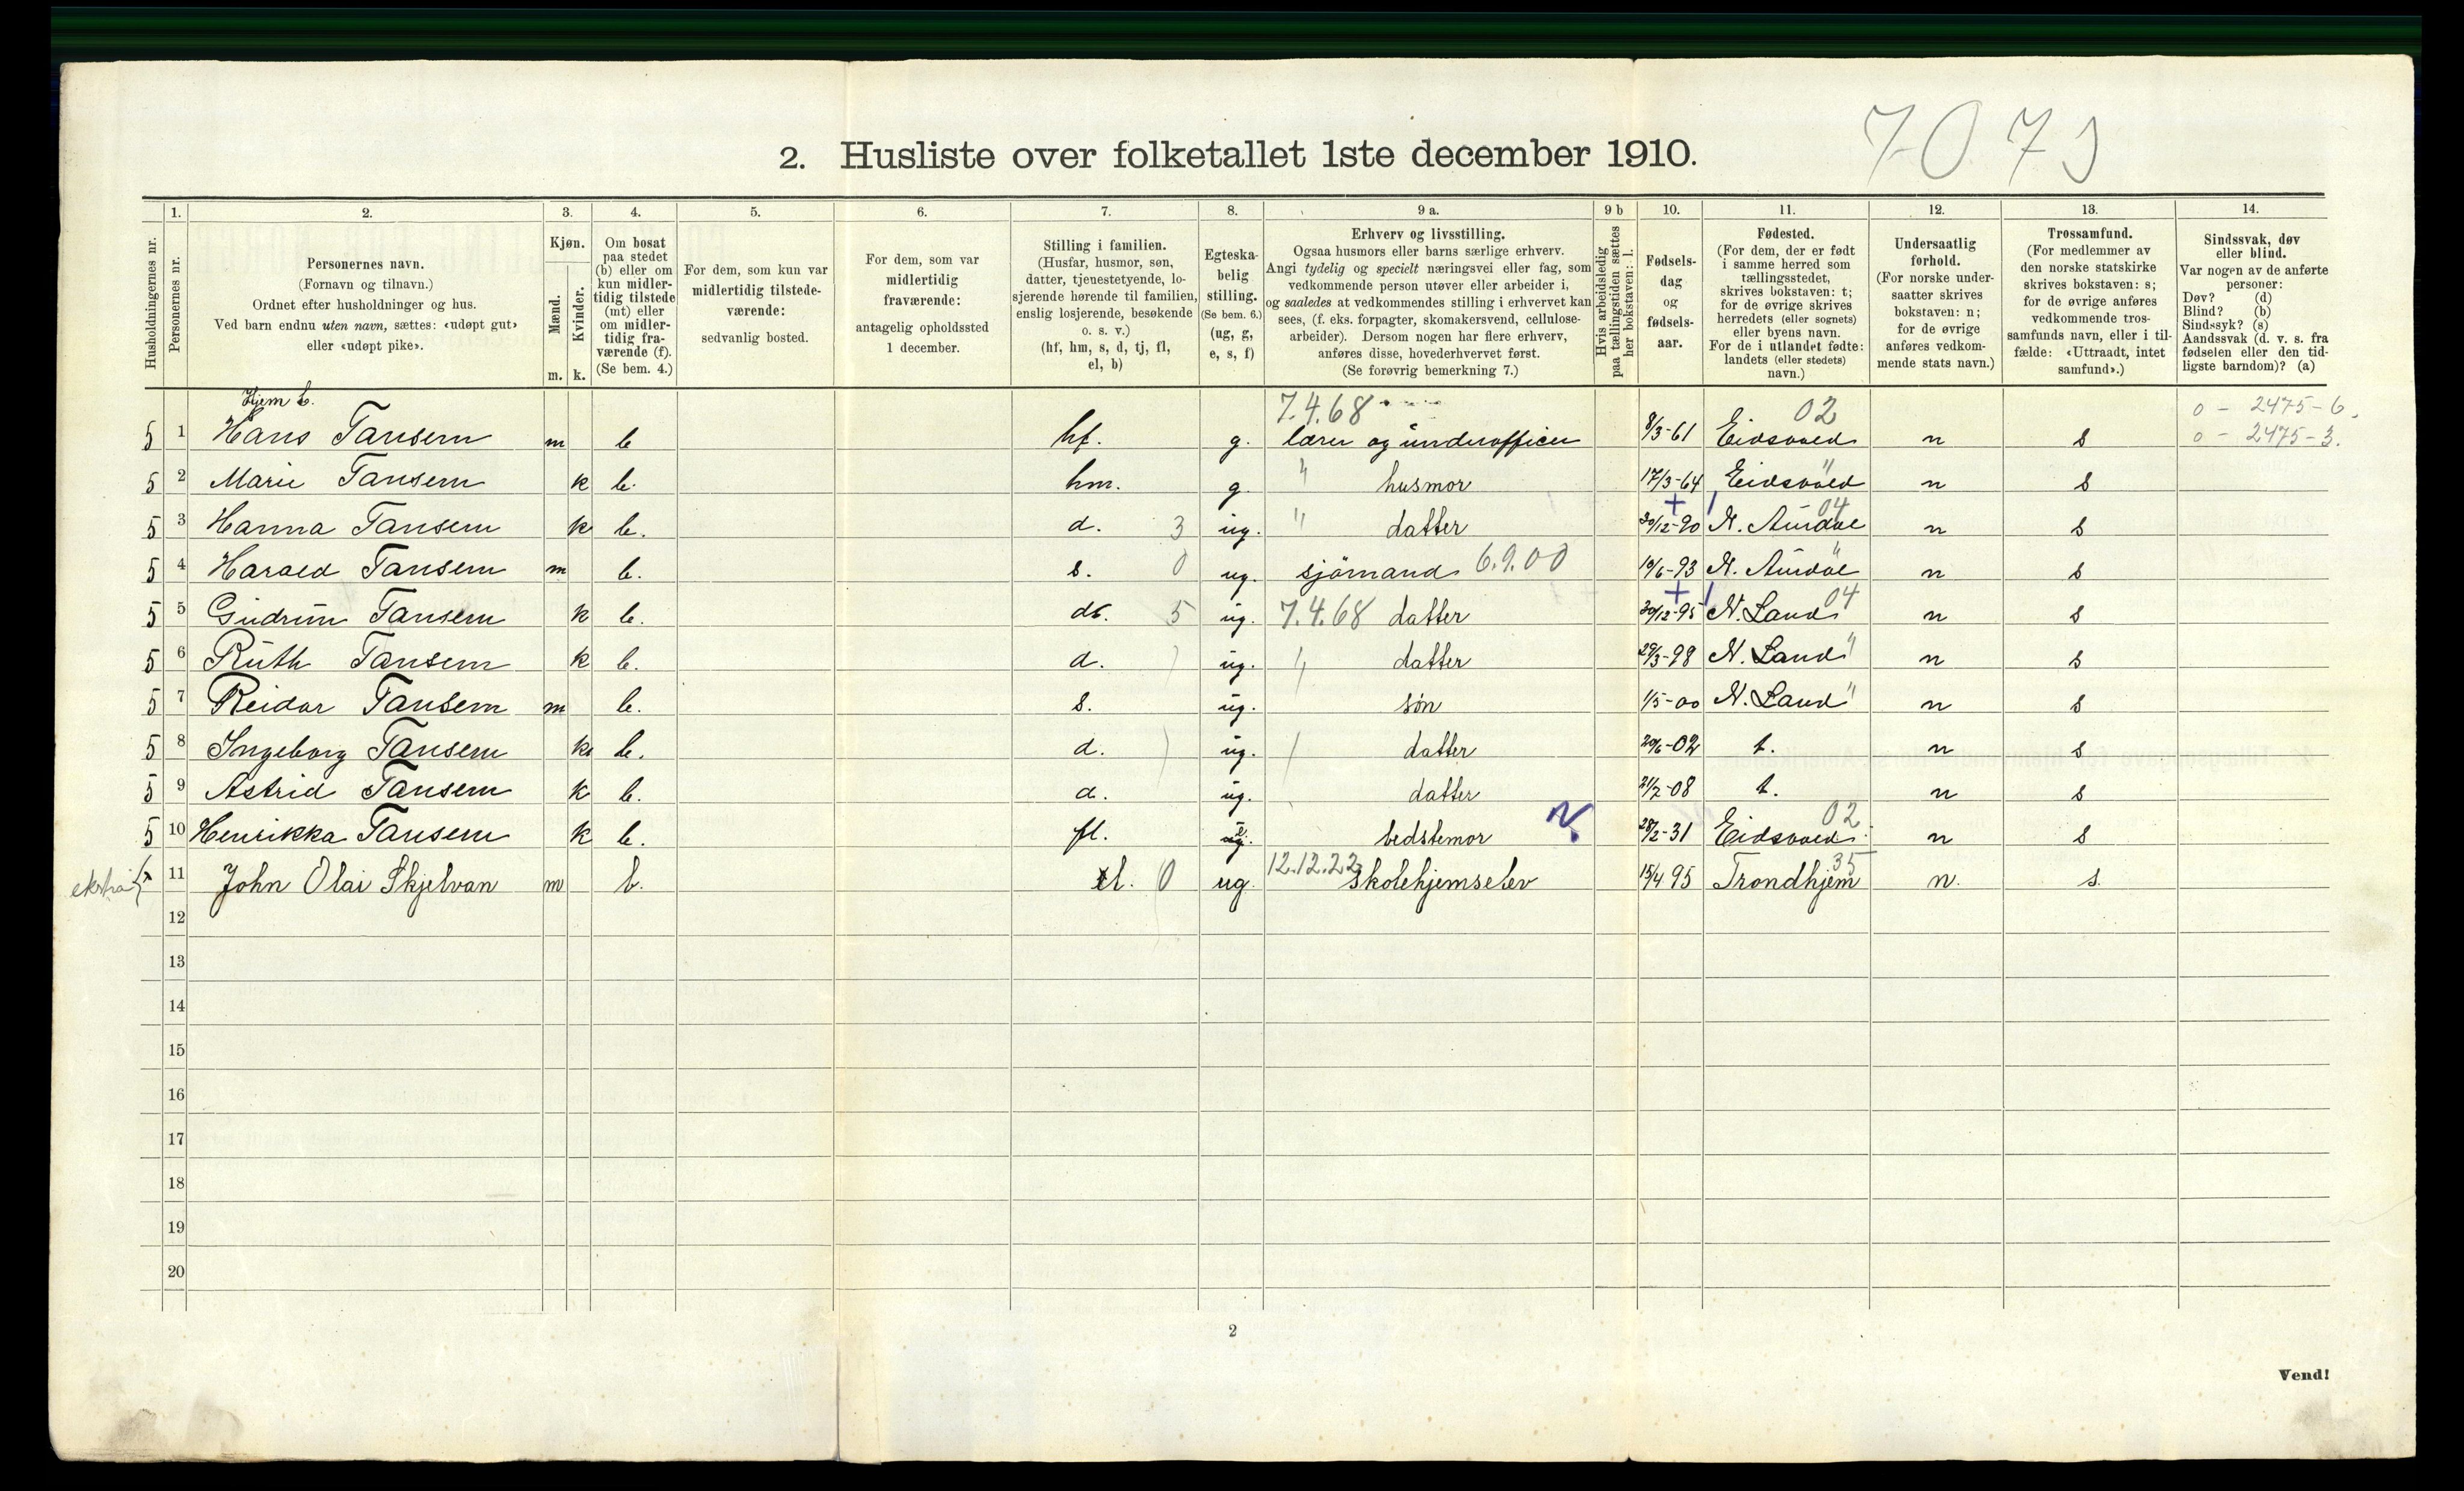 7073
2. Husliste over folketallet 1ste december 1910.
Husholdningernes nr.
1. Personernes nr.
2. Personernes navn.
(Fornavn og tilnavn.)
Ordnet efter husholdninger og hus.
Ved barn endnu uten navn, sættes: «udøpt gut»
eller «udøpt pike».
3. Kjøn.
Mænd. Kvinder.
m. k.
4. Om bosat
paa stedet
(b) eller om
kun midler-
tidig tilstede
(mt) eller
om midler-
tidig fra-
værende (f).
(Se bem. 4.)
5. For dem, som kun var
midlertidig tilstede-
værende:
sedvanlig bosted.
6. For dem, som var
midlertidig
fraværende:
antagelig opholdssted
1 december.
7. Stilling i familien.
(Husfar, husmor, søn,
datter, tjenestetyende, lo-
sjerende hørende til familien,
enslig losjerende, besøkende
o. s. v.)
(hf, hm, s, d, tj, fl,
el, b)
8. Egteska-
belig
stilling.
(Se bem. 6.)
(ug, g,
e, s, f)
9 a. Erhverv og livsstilling.
Ogsaa husmors eller barns særlige erhverv.
Angi tydelig og specielt næringsvei eller fag, som
vedkommende person utøver eller arbeider i,
og saaledes at vedkommendes stilling i erhvervet kan
sees, (f. eks. forpagter, skomakersvend, cellulose-
arbeider). Dersom nogen har flere erhverv,
anføres disse, hovederhvervet først.
(Se forøvrig bemerkning 7.)
9 b Hvis arbeidsledig
paa tællingstiden sættes
her bokstaven: l.
10. Fødsels-
dag
og
fødsels-
aar.
11. Fødested.
(For dem, der er født
i samme herred som
tællingsstedet,
skrives bokstaven: t;
for de øvrige skrives
herredets (eller sognets)
eller byens navn.
For de i utlandet fødte:
landets (eller stedets)
navn.)
12. Undersaatlig
forhold.
(For norske under-
saatter skrives
bokstaven: n;
for de øvrige
anføres vedkom-
mende stats navn.)
13. Trossamfund.
(For medlemmer av
den norske statskirke
skrives bokstaven: s;
for de øvrige anføres
vedkommende tros-
samfunds navn, eller i til-
fælde: «Uttraadt, intet
samfund».)
14. Sindssvak, døv
eller blind.
Var nogen av de anførte
personer:
Døv? (d)
Blind? (b)
Sindssyk? (s)
Aandssvak (d. v. s. fra
fødselen eller den tid-
ligste barndom)? (a)
Hjem b. 7.4.68 02 0 - 2475-6.
5 1 Hans Tansem m b hf. g. lærer og underofficer 8/3-61 Eidsvold n s 0 - 2475-3.
5 2 Marie Tansem k b. hm. g. " husmor 17/3-64 Eidsvold " n s
5 3 Hanna Tansem k b. d. 3 ug. " datter 30/12-90 N. Aurdal 04 n s
5 4 Harald Tansem m b. s. 0 ug. sjömand 6.9.00 10/6-93 N. Aurdal " n s
5 5 Gudrun Tansem k b. dt. 5 ug. 7.4.68 datter 30/12-95 N. Land 04 n s
5 6 Ruth Tansem k b. d. ug. " datter 29/3-98 N. Land " n s
5 7 Reidar Tansem m b. s. ug. søn 1/5-00 N. Land " n s
5 8 Ingeborg Tansem k b. d. ug. datter 20/6-02 t. n s
5 9 Astrid Tansem k b. d. ug. datter 21/2-08 t. n s
5 10 Henrikka Tansem k b. fl. e. bedstemor N. 28/2-31 Eidsvold 02 n s
ekstra 11 John Olai Skjelvan m b. el. 0 ug. 12.12.22 Skolehjemselev 15/4 95 Trondhjem 35 n. s.
12
13
14
15
16
17
18
19
20
2
Vend!